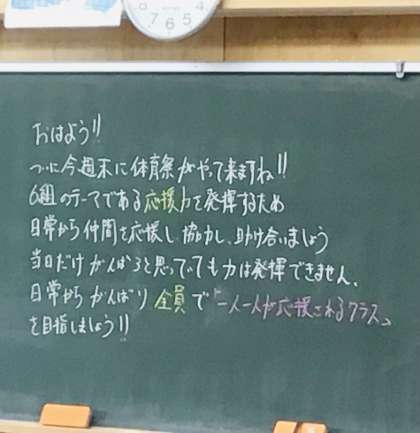 おはよう!!
ついに今週末に体育祭がやって来ますね!!
6週のテーマである応援力を発揮するため
日常から仲間を応援し、協力し、助け合いましょう
当日だけがんばろうと思っていても力は発揮できません。
日常からがんばり全員で「一人一人が応援されるクラス」
を目指しましょう!!